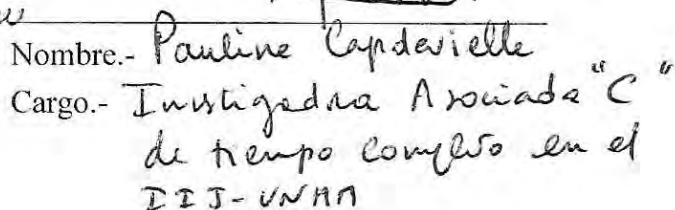 Nombre.- Pauline Capdevielle
Cargo.- Investigadora Asociada "C"
de tiempo completo en el
IIJ-UNAM